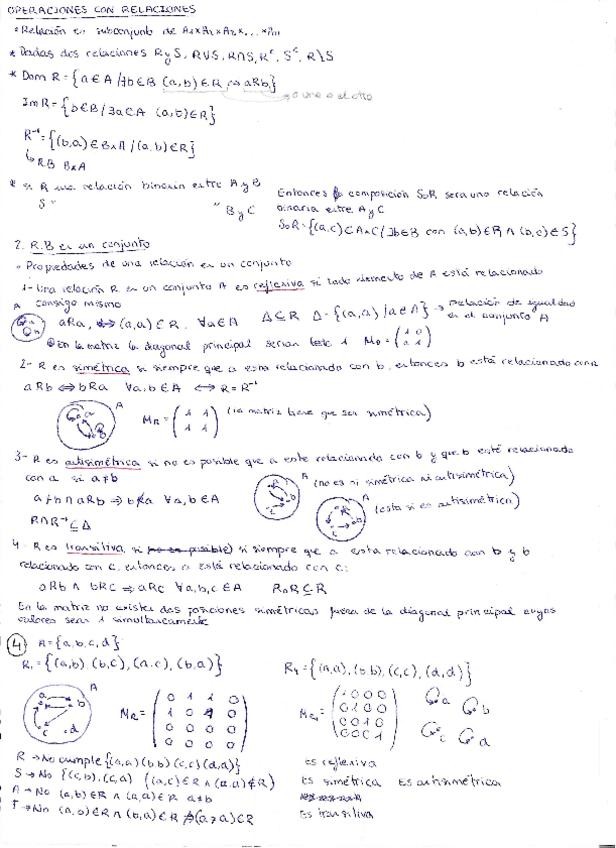 OPERACIONES CON RELACIONES
• Relación es subconjunto de A₁×A₂×A₃×...×Aₙ
* Dadas dos relaciones R y S, R∪S, R∩S, Rᶜ, Sᶜ, R\S
* Dom R = {a∈A / ∃b∈B (a,b)∈R ↔ aRb}
Im R = {b∈B / ∃a∈A (a,b)∈R}
R⁻¹ = {(b,a)∈B×A / (a,b)∈R}
↳ R.B B×A
* Si R una relación binaria entre A y B
S " " B y C
Entonces la composición S∘R sera una relación
binaria entre A y C
S∘R = {(a,c)⊂A×C / ∃b∈B con (a,b)∈R ∧ (b,c)∈S}
2. R.B en un conjunto
• Propiedades de una relación en un conjunto
1- Una relación R en un conjunto A es reflexiva si todo elemento de A está relacionado
consigo mismo
A
aRa, ↔ (a,a)∈R. ∀a∈A Δ⊆R Δ={(a,a)/a∈A} → relación de igualdad
en el conjunto A
En la matriz la diagonal principal serian todo 1
2- R es simétrica si siempre que a esta relacionado con b, entonces b está relacionado con a
aRb ⇔ bRa ∀a,b∈A ↔ R=R⁻¹
A
M_R = (1 1 / 1 1) (la matriz tiene que ser simétrica)
3- R es antisimétrica si no es posible que a este relacionado con b y que b esté relacionado
con a si a≠b
A (no es ni simétrica ni antisimétrica)
a≠b ∧ aRb ⇒ b R̸ a ∀a,b∈A
A (esta si es antisimétrica)
R∩R⁻¹ ⊆ Δ
4- R es transitiva, si siempre que a esta relacionado con b y b
relacionado con c, entonces a está relacionado con c:
aRb ∧ bRc ⇒ aRc ∀a,b,c∈A R∘R⊆R
En la matriz no existen dos posiciones simétricas fuera de la diagonal principal cuyos
valores sean 1 simultaneamente
④ A={a,b,c,d}
R₁={(a,b),(b,c),(a,c),(b,a)} R₄={(a,a),(b,b),(c,c),(d,d)}
a b c d A
M_R = (0 1 1 0 / 1 0 1 0 / 0 0 0 0 / 0 0 0 0)
(1 0 0 0 / 0 1 0 0 / 0 0 1 0 / 0 0 0 1)
R → No cumple {(a,a)(b,b)(c,c)(d,d)} es reflexiva
S → No es simétrica Es antisimétrica
A → No (a,b)∈R ∧ (b,a)∈R a≠b
T → No (a,b)∈R ∧ (b,a)∈R Es transitiva